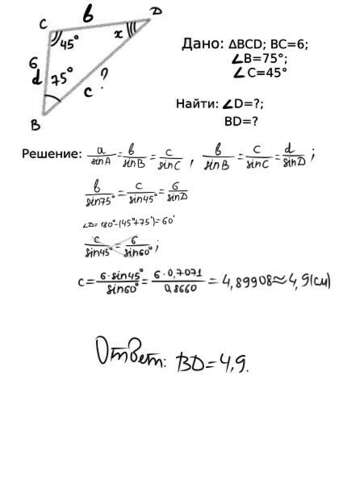 C b D
45° x
6
d 75° ?
c
B
Дано: ΔBCD; BC=6;
∠B=75°;
∠C=45°
Найти: ∠D=?;
BD=?
Решение: a/sinA = b/sinB = c/sinC , b/sinB = c/sinC = d/sinD ;
b/sin75° = c/sin45° = 6/sinD
∠D=180°-(45°+75°)=60°
c/sin45° = 6/sin60° ;
c = 6·sin45°/sin60° = 6·0,7071/0,8660 = 4,89908≈4,9(см)
Ответ: BD=4,9.